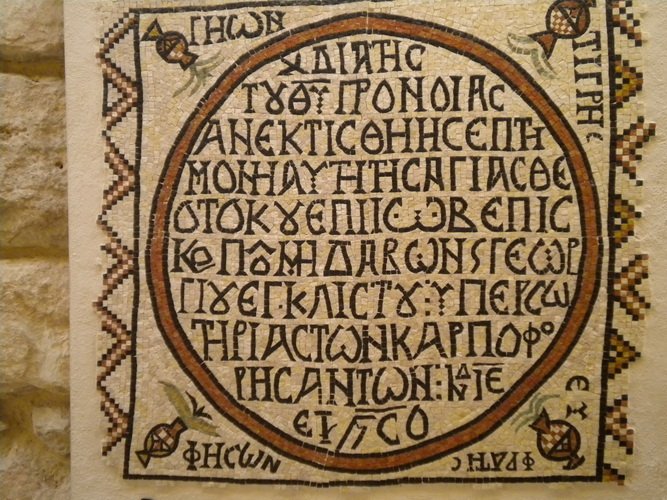 ΓΗΩΝ
ΤΙΓΡΗϹ
ΔΙΑΤΗϹ
ΤΟΥΘΥΠΡΟΝΟΙΑϹ
ΑΝΕΚΤΙϹΘΗΗϹΕΠΤΗ
ΜΟΝΗΑΥΤΗΤΗϹΑΓΙΑϹΘΕ
ΟΤΟΚΟΥΕΠΙΙΩΒΕΠΙϹ
ΚΟΠΟΥΜΗΔΑΒΩΝSΓΕΩΡ
ΓΙΟΥΕΓΚΛΙϹΤΟΥ:ΥΠΕΡϹΩ
ΤΗΡΙΑϹΤΩΝΚΑΡΠΟΦΟ
ΡΗϹΑΝΤΩΝ:ΙΝΔΙΕ
ΦΗϹΩΝ
ΕΥ
ΦΡΑΤΗϹ